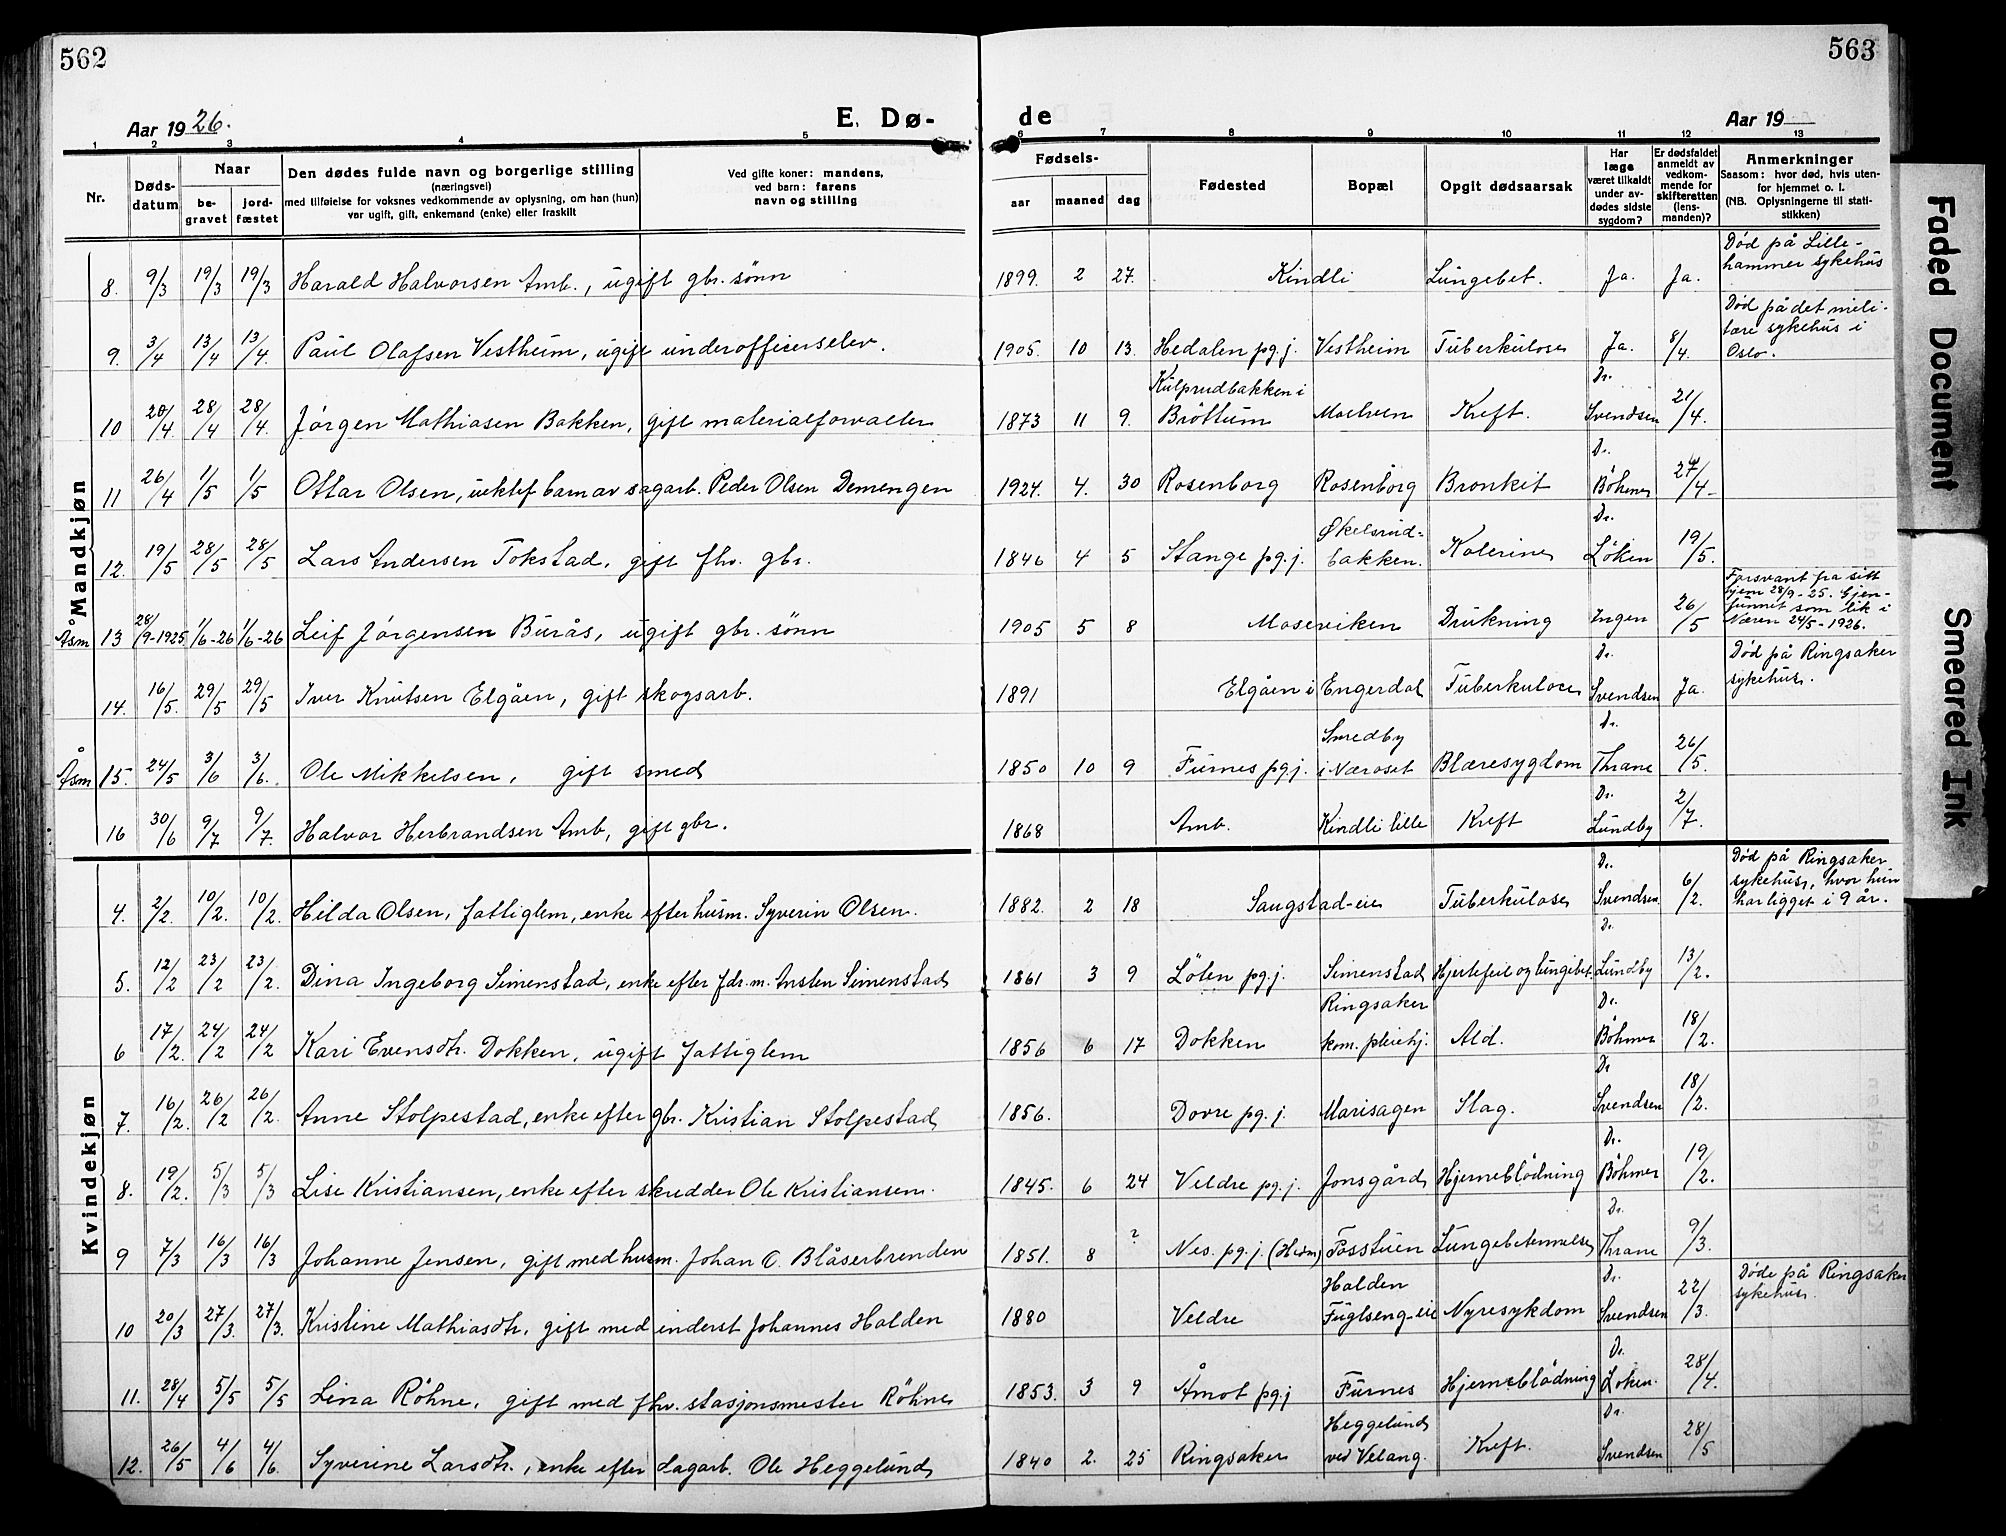 562
563
Aar 1926.
E. Dø-
de
Aar 19
1 2 3 4 5 6 7 8 9 10 11 12 13
Nr.
Døds-
datum
Naar
be-
gravet
jord-
fæstet
Den dødes fulde navn og borgerlige stilling
(næringsvei)
med tilføielse for voksnes vedkommende av oplysning, om han (hun)
var ugift, gift, enkemand (enke) eller fraskilt
Ved gifte koner: mandens,
ved barn: farens
navn og stilling
Fødsels-
aar
maaned
dag
Fødested
Bopæl
Opgit dødsaarsak
Har
læge
været tilkaldt
under av-
dødes sidste
sygdom?
Er dødsfaldet
anmeldt av
vedkom-
mende for
skifteretten
(lens-
manden)?
Anmerkninger
Saasom: hvor død, hvis uten-
for hjemmet o. l.
(NB. Oplysningerne til stati-
stikken)
Mandkjøn
8. 9/3 19/3 19/3 Harald Halvorsen Amb., ugift gbr. sønn 1899. 2 27. Kindli Lungebet. Ja. Ja. Død på Lille-
hammer sykehus
9. 3/4 13/4 13/4. Paul Olafsen Vestheim, ugift underofficerselev. 1905. 10 13. Hedalen pg.j. Vestheim Tuberkulose Ja. 8/4. Død på det mili-
tære sykehus i
Oslo.
10 20/4. 28/4 28/4. Jørgen Mathiasen Bakken, gift materialforvalter 1873 11 9. Kulprudbakken i
Bröttum Moelven Kreft. Dr.
Svendsen 21/4.
11 26/4 1/5 1/5 Ottar Olsen, uektef barn av sagarb. Peder Olsen Demengen 1924. 4. 30 Rosenborg Rosenborg Bronkit Dr.
Böhmer 27/4
12. 19/5 28/5 28/5 Lars Andersen Tokstad, gift fhv. gbr. 1846 4 5 Stange pg.j. Økelsrud-
bakken. Kolerine Dr.
Löken 19/5.
Åsm 13 28/9-1925 1/6-26 1/6-26 Leif Jørgensen Burås, ugift gbr. sønn 1905 5 8 Moseviken Drukning Ingen 26/5 Forsvant fra sitt
hjem 28/9-25. Gjen-
funnet som lik i
Næren 24/5-1926.
14. 16/5. 29/5 29/5 Iver Knutsen Elgåen, gift skogsarb. 1891 Elgåen i Engerdal Tuberkulose Dr.
Svendsen Ja. Død på Ringsaker
sykehus.
Åsm 15. 24/5 3/6 3/6. Ole Mikkelsen, gift smed 1850 10 9 Furnes pgj. Smedby
i Næroset Blæresygdom Dr.
Thrane 26/5.
16 30/6 9/7 9/7. Halvor Herbrandsen Amb, gift gbr. 1868 Amb. Kindli lille Kreft Dr.
Lundby 2/7.
Kvindekjøn
4. 2/2. 10/2. 10/2. Hilda Olsen, fattiglem, enke efter husm. Syverin Olsen. 1882. 2 18 Saugstad-eie Tuberkulose Dr.
Svendsen 6/2. Død på Ringsaker
sykehus, hvor hun
har ligget i 9 år.
5. 12/2 23/2 23/2. Dina Ingeborg Simenstad, enke efter fdr.m. Ansten Simenstad 1861 3 9 Löten pg.j. Simenstad Hjertefeil og lungebet. Dr.
Lundby 13/2.
6 17/2. 24/2 24/2 Kari Evensdtr. Dokken, ugift fattiglem 1856 6 17 Dokken Ringsaker
kom. pleiehj. Ald. Dr.
Böhmer 18/2.
7. 16/2. 26/2 26/2. Anne Stolpestad, enke efter gbr. Kristian Stolpestad 1856. Dovre pg.j. Marisagen Slag. Dr
Svendsen 18/2.
8. 19/2. 5/3 5/3 Lise Kristiansen, enke efter skredder Ole Kristiansen. 1845. 6 24 Veldre pg.j. Jonsgård Hjerneblödning Dr.
Böhmer 19/2.
9 7/3 16/3 16/3 Johanne Jensen, gift med husm. Johan O. Blåserbrenden 1851. 8 ? Nes. pg.j. (Hedm) Posstuen Lungebetennelse Dr.
Thrane 9/3.
10 20/3 27/3. 27/3. Kristine Mathiasdtr. gift med inderst Johannes Halden 1880 Veldre Halden
Fuglseng-eie Nyresykdom Dr.
Svendsen 22/3. Døde på Ringsaker
sykehus.
11. 28/4 5/5 5/5 Lina Röhne, gift med fhv. stasjonsmester Röhne 1853. 3 9 Åmot pgj Furnes Hjerneblödning Dr.
Loken. 28/4.
12. 26/5 4/6 4/6. Syverine Larsdtr., enke efter dagarb. Ole Heggelund 1840 2. 25 Ringsaker Heggelund
ved Velang. Kreft. Dr.
Svendsen 28/5
Faded Document
Smeared Ink